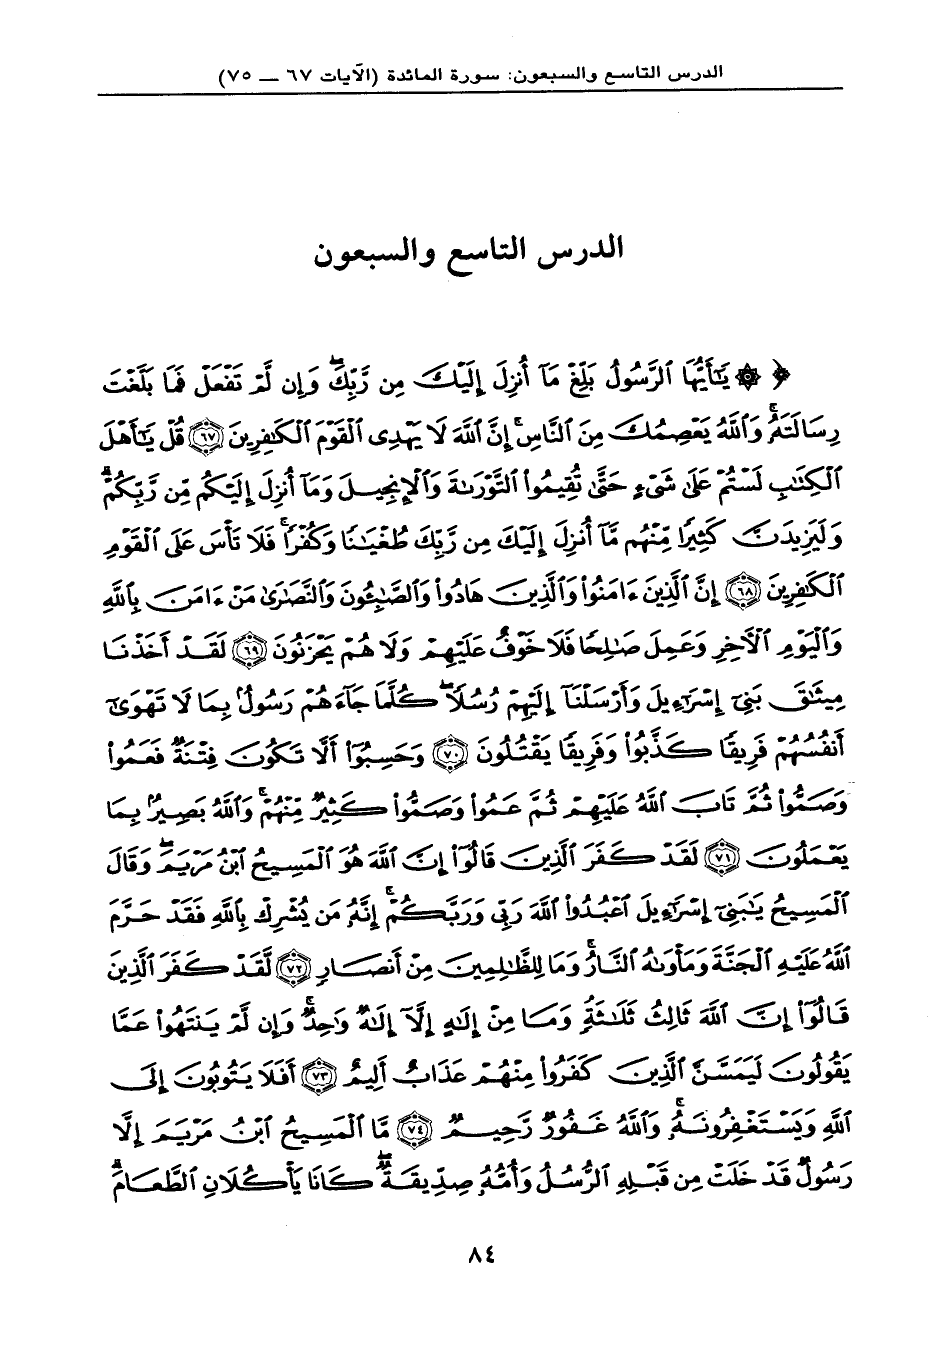 الدرس التاسع والسبعون: سورة المائدة (الآيات ٦٧ — ٧٥)
الدرس التاسع والسبعون
﴿ ۞ يَٰٓأَيُّهَا ٱلرَّسُولُ بَلِّغْ مَآ أُنزِلَ إِلَيْكَ مِن رَّبِّكَۖ وَإِن لَّمْ تَفْعَلْ فَمَا بَلَّغْتَ
رِسَالَتَهُۥۚ وَٱللَّهُ يَعْصِمُكَ مِنَ ٱلنَّاسِۗ إِنَّ ٱللَّهَ لَا يَهْدِى ٱلْقَوْمَ ٱلْكَٰفِرِينَ ٦٧ قُلْ يَٰٓأَهْلَ
ٱلْكِتَٰبِ لَسْتُمْ عَلَىٰ شَىْءٍ حَتَّىٰ تُقِيمُوا۟ ٱلتَّوْرَىٰةَ وَٱلْإِنجِيلَ وَمَآ أُنزِلَ إِلَيْكُم مِّن رَّبِّكُمْۗ
وَلَيَزِيدَنَّ كَثِيرًا مِّنْهُم مَّآ أُنزِلَ إِلَيْكَ مِن رَّبِّكَ طُغْيَٰنًا وَكُفْرًاۖ فَلَا تَأْسَ عَلَى ٱلْقَوْمِ
ٱلْكَٰفِرِينَ ٦٨ إِنَّ ٱلَّذِينَ ءَامَنُوا۟ وَٱلَّذِينَ هَادُوا۟ وَٱلصَّٰبِـُٔونَ وَٱلنَّصَٰرَىٰ مَنْ ءَامَنَ بِٱللَّهِ
وَٱلْيَوْمِ ٱلْءَاخِرِ وَعَمِلَ صَٰلِحًا فَلَا خَوْفٌ عَلَيْهِمْ وَلَا هُمْ يَحْزَنُونَ ٦٩ لَقَدْ أَخَذْنَا
مِيثَٰقَ بَنِىٓ إِسْرَٰٓءِيلَ وَأَرْسَلْنَآ إِلَيْهِمْ رُسُلًاۖ كُلَّمَا جَآءَهُمْ رَسُولٌۢ بِمَا لَا تَهْوَىٰٓ
أَنفُسُهُمْ فَرِيقًا كَذَّبُوا۟ وَفَرِيقًا يَقْتُلُونَ ٧٠ وَحَسِبُوٓا۟ أَلَّا تَكُونَ فِتْنَةٌ فَعَمُوا۟
وَصَمُّوا۟ ثُمَّ تَابَ ٱللَّهُ عَلَيْهِمْ ثُمَّ عَمُوا۟ وَصَمُّوا۟ كَثِيرٌ مِّنْهُمْۚ وَٱللَّهُ بَصِيرٌۢ بِمَا
يَعْمَلُونَ ٧١ لَقَدْ كَفَرَ ٱلَّذِينَ قَالُوٓا۟ إِنَّ ٱللَّهَ هُوَ ٱلْمَسِيحُ ٱبْنُ مَرْيَمَۖ وَقَالَ
ٱلْمَسِيحُ يَٰبَنِىٓ إِسْرَٰٓءِيلَ ٱعْبُدُوا۟ ٱللَّهَ رَبِّى وَرَبَّكُمْۖ إِنَّهُۥ مَن يُشْرِكْ بِٱللَّهِ فَقَدْ حَرَّمَ
ٱللَّهُ عَلَيْهِ ٱلْجَنَّةَ وَمَأْوَىٰهُ ٱلنَّارُۖ وَمَا لِلظَّٰلِمِينَ مِنْ أَنصَارٍ ٧٢ لَّقَدْ كَفَرَ ٱلَّذِينَ
قَالُوٓا۟ إِنَّ ٱللَّهَ ثَالِثُ ثَلَٰثَةٍۘ وَمَا مِنْ إِلَٰهٍ إِلَّآ إِلَٰهٌ وَٰحِدٌۚ وَإِن لَّمْ يَنتَهُوا۟ عَمَّا
يَقُولُونَ لَيَمَسَّنَّ ٱلَّذِينَ كَفَرُوا۟ مِنْهُمْ عَذَابٌ أَلِيمٌ ٧٣ أَفَلَا يَتُوبُونَ إِلَى
ٱللَّهِ وَيَسْتَغْفِرُونَهُۥۚ وَٱللَّهُ غَفُورٌ رَّحِيمٌ ٧٤ مَّا ٱلْمَسِيحُ ٱبْنُ مَرْيَمَ إِلَّا
رَسُولٌ قَدْ خَلَتْ مِن قَبْلِهِ ٱلرُّسُلُ وَأُمُّهُۥ صِدِّيقَةٌۖ كَانَا يَأْكُلَانِ ٱلطَّعَامَۗ
٨٤